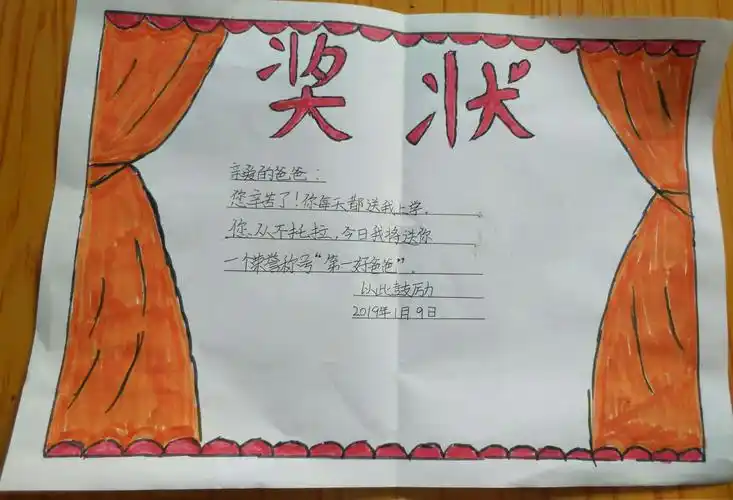 奖状
亲爱的爸爸：
您辛苦了！你每天都送我上学，
您从不托拉，今日我将送你
一个荣誉称号“第一好爸爸”。
以此鼓励
2019年1月9日